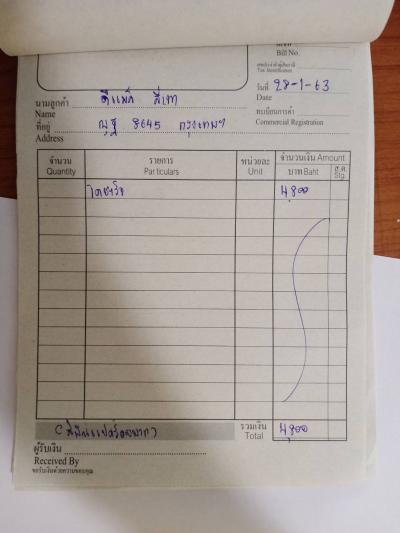 Bill No.
เลขประจำตัวผู้เสียภาษี
Tax Identification
วันที่ 28-1-63
Date
ทะเบียนการค้า
Commercial Registration
นามลูกค้า
Name
ที่อยู่ 8645 กรุงเทพฯ
Address
จำนวน รายการ หน่วยละ จำนวนเงิน Amount
Quantity Particulars Unit บาท Baht ส.ต. Stg.
4,800
รวมเงิน 4,800
Total
ผู้รับเงิน
Received By
ขอรับเงินด้วยความขอบคุณ